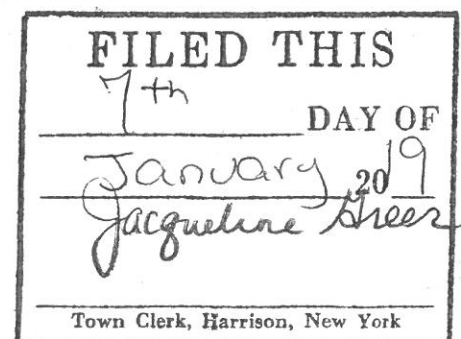 FILED THIS
7th
DAY OF
January, 2019
Jacqueline Greer
Town Clerk, Harrison, New York